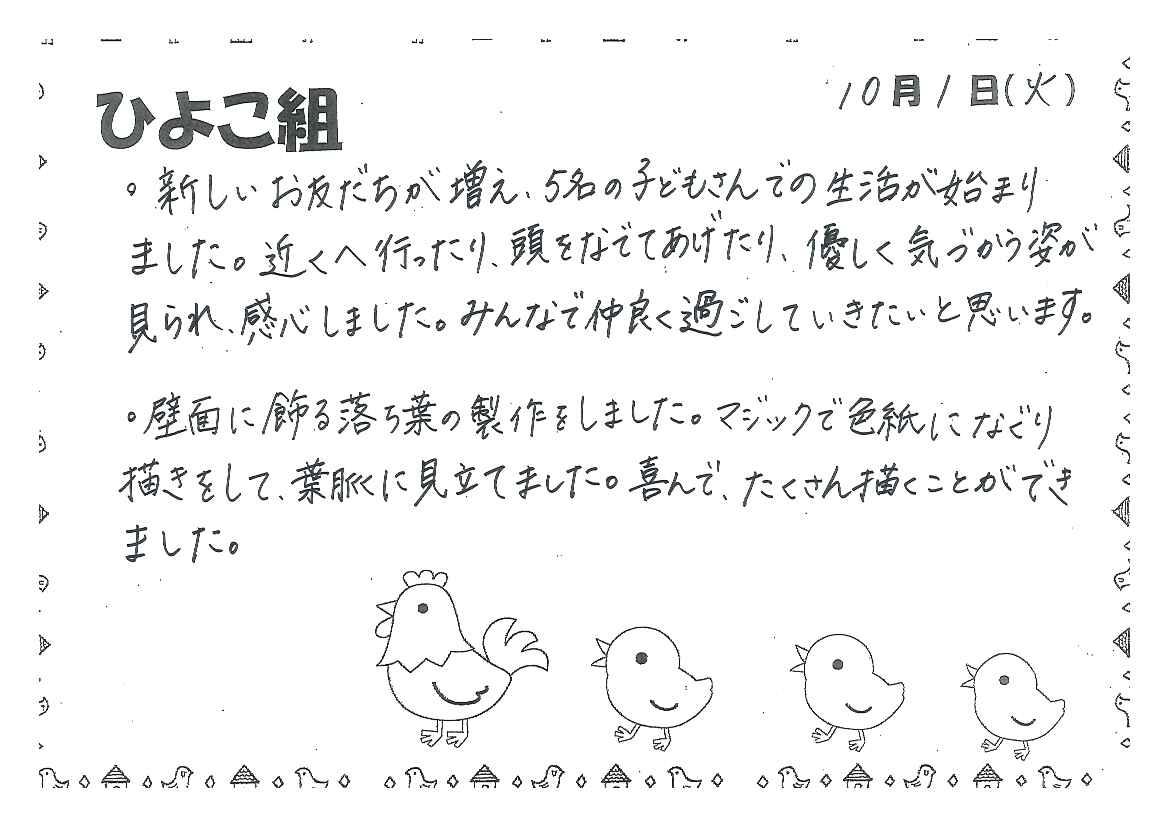 ひよこ組
10月1日(火)
。新しいお友だちが増え、5名の子どもさんでの生活が始まり
ました。近くへ行ったり、頭をなでてあげたり、優しく気づかう姿が
見られ、感心しました。みんなで仲良く過ごしていきたいと思います。
。壁面に飾る落ち葉の製作をしました。マジックで色紙になぐり
描きをして、葉脈に見立てました。喜んで、たくさん描くことができ
ました。